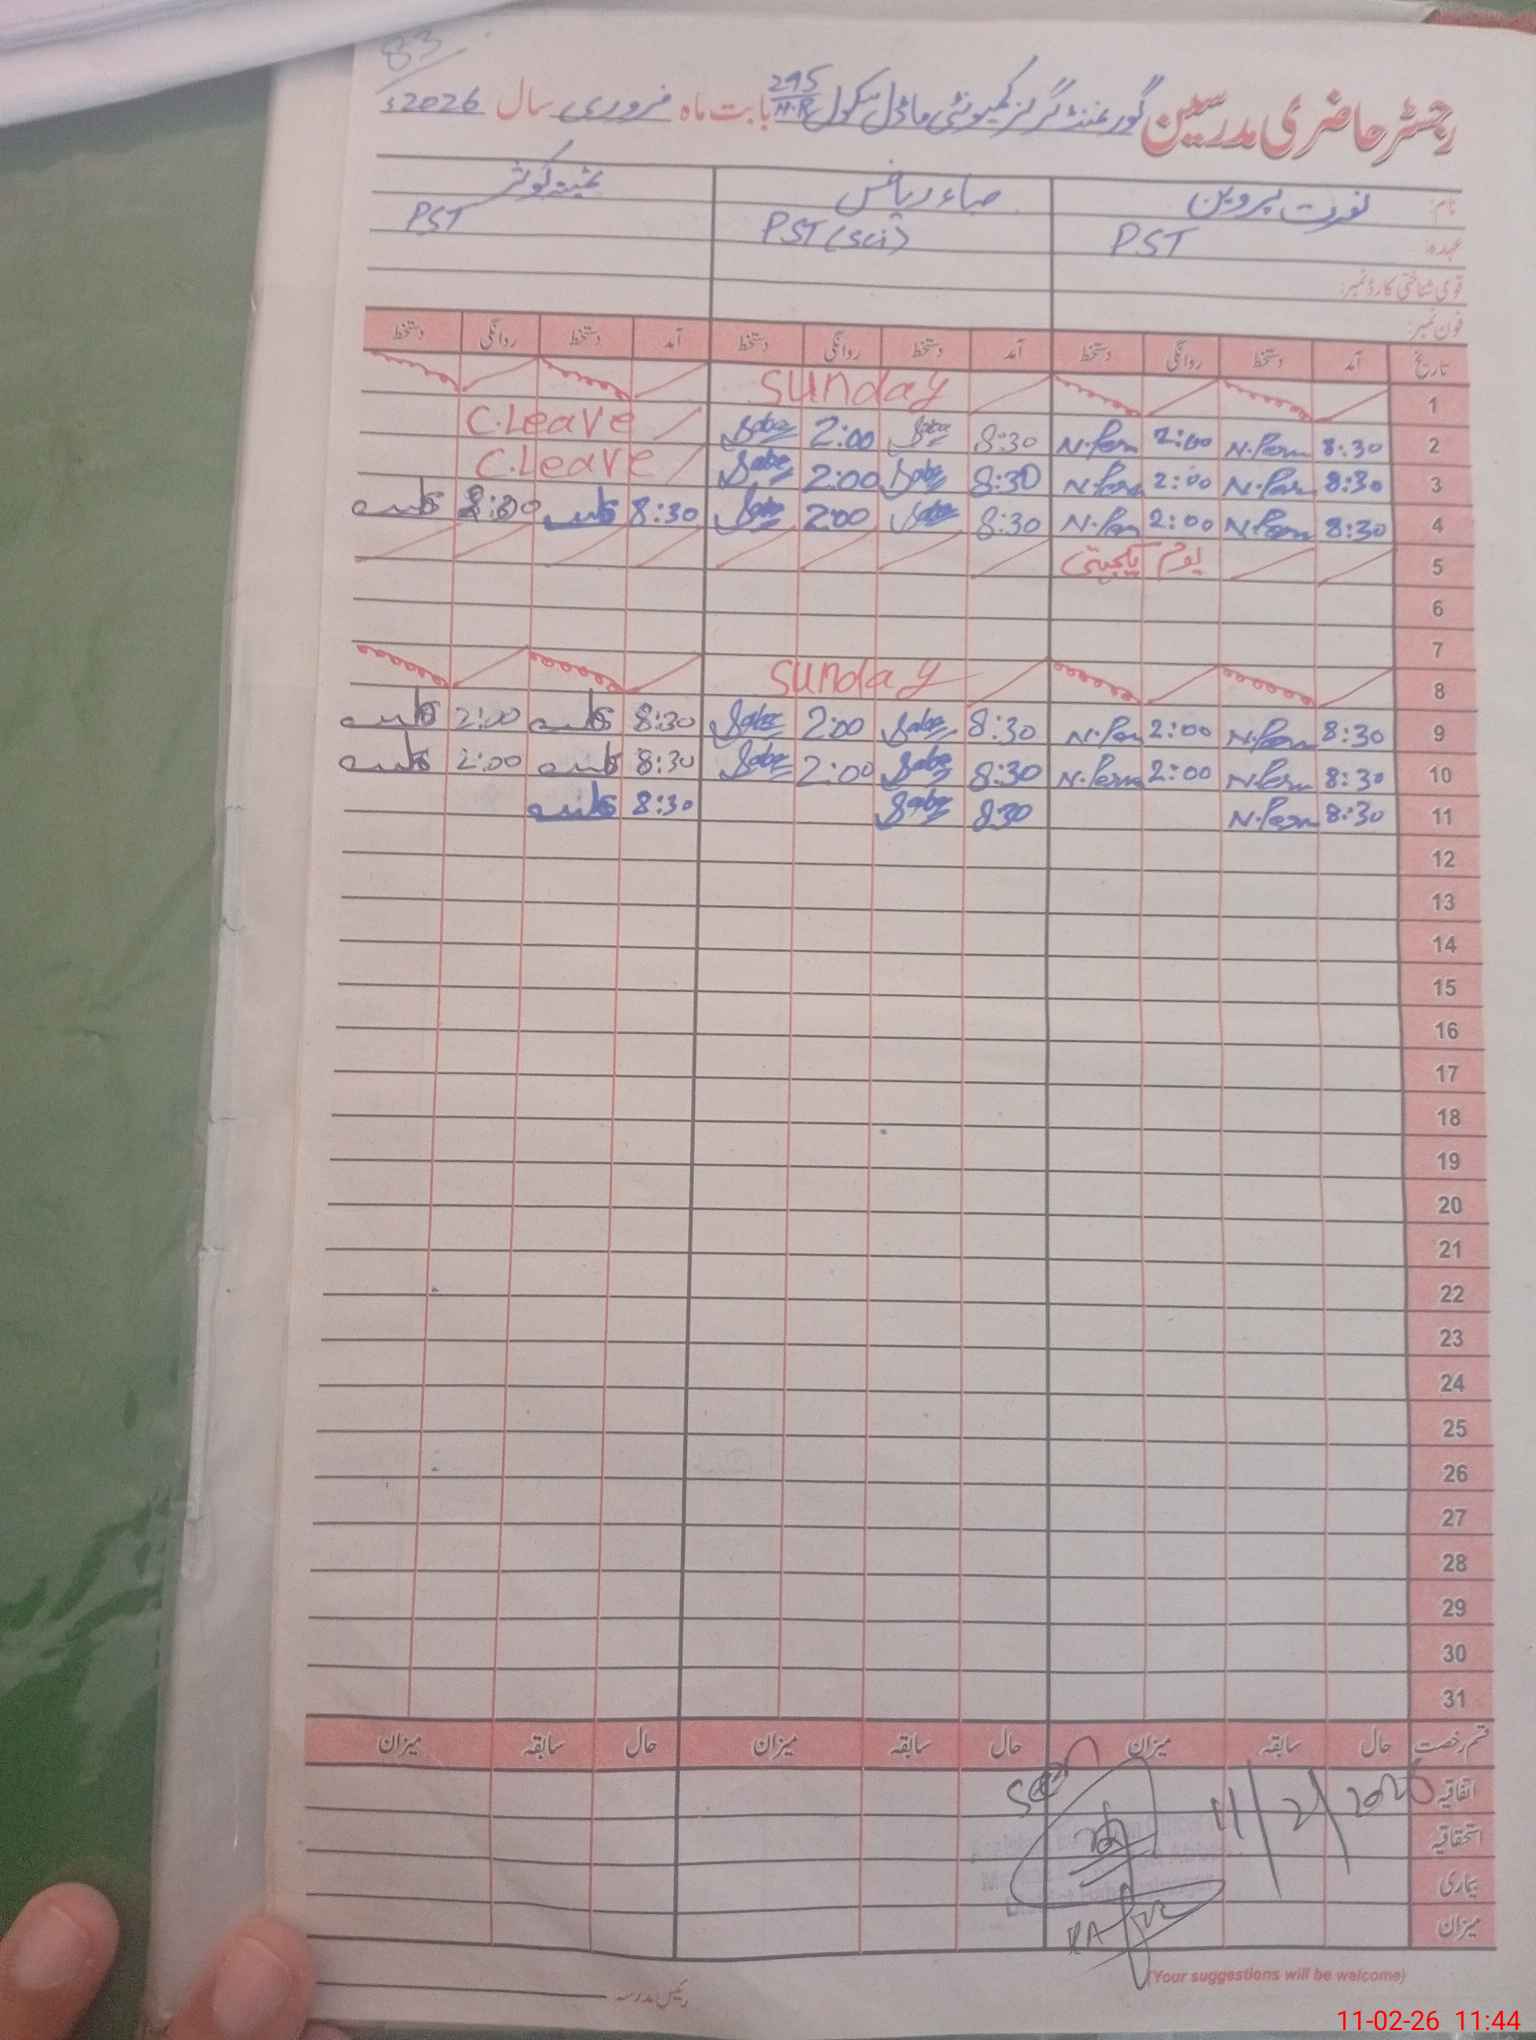 83
رجسٹر حاضری مدرسین گورنمنٹ گرلز کمیونٹی ماڈل سکول 295 بابت ماہ فروری سال 2026ء
نام: نصرت پروین صباء ریاض ثمینہ کوثر
عہدہ: PST PST (Sci) PST
قومی شناختی کارڈ نمبر:
فون نمبر:
تاریخ آمد دستخط روانگی دستخط آمد دستخط روانگی دستخط آمد دستخط روانگی دستخط
1 Sunday
2 8:30 2:00 8:30 2:00 C.Leave
3 8:30 2:00 8:30 2:00 C.Leave
4 8:30 2:00 8:30 2:00 8:30
5 یوم یکجہتی
6
7
8 Sunday
9 8:30 2:00 8:30 2:00 8:30 2:00
10 8:30 2:00 8:30 2:00 8:30 2:00
11 8:30 8:30 8:30
12
13
14
15
16
17
18
19
20
21
22
23
24
25
26
27
28
29
30
31
قسم رخصت حال سابقہ میزان حال سابقہ میزان حال سابقہ میزان
اتفاقیہ
استحقاقیہ
بیماری
میزان
11/2/2026
(Your suggestions will be welcome)
رئیس مدرسہ
11-02-26 11:44